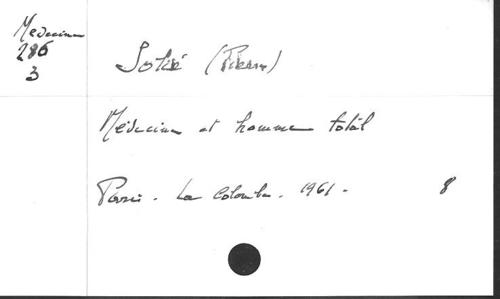 Médecine
286
3
Solié (Pierre)
Médecine et homme total
Paris. La Colombe. 1961. 8